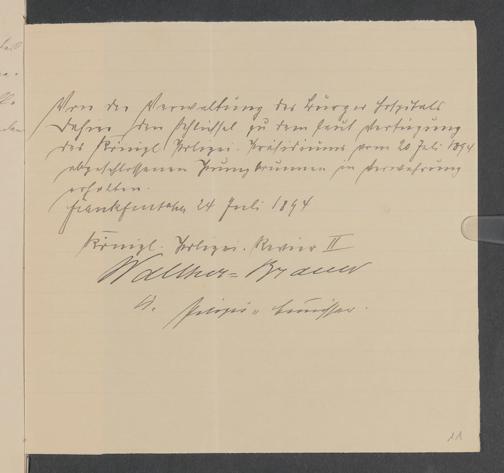 Von der Verwaltung des Bürger Hospitals
dahier den Schlüssel zu dem laut Verfügung
des Königl. Polizei. Präsidiums vom 20 Juli 1894
abgeschlossenen Pumpbrunnen in Verwahrung
erhalten.
Frankfurt a/M 24 Juli 1894
Königl. Polizei. Revier II
Polizei=
11